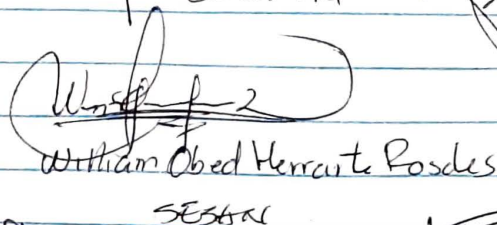 William Obed Herrarte Rosales
SESAN